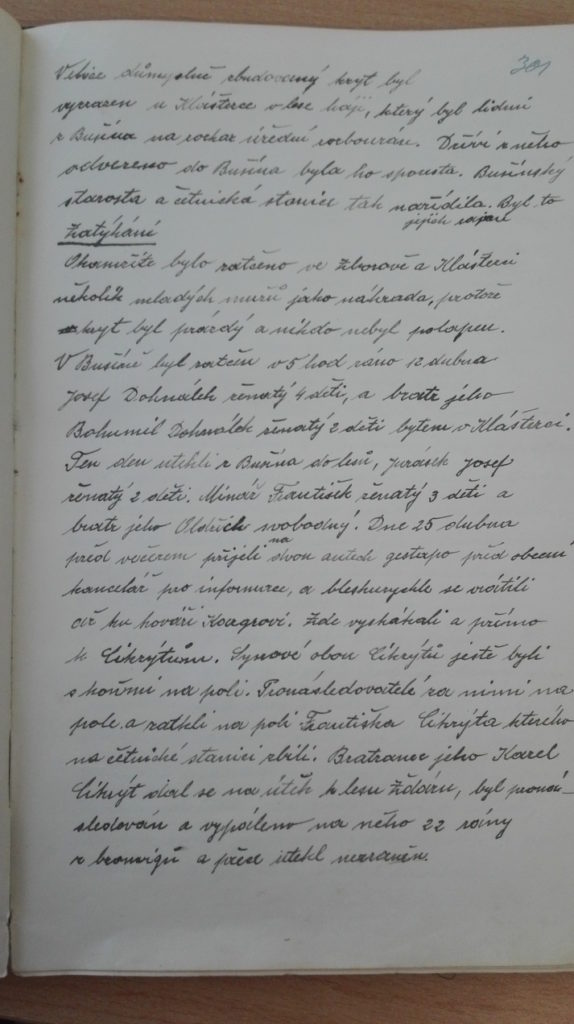 301
Velice důmyslně zbudovaný kryt byl
vyrazen u Klášterce v lese háji, který byl lidmi
z Bušína na rozkaz úřední rozbourán. Dříví z něho
odvezeno do Bušína byla ho spousta. Bušínský
starosta a četnická stanice tak nařídila. Byl to
jejich
Zatýkání
Okamžitě bylo zatčeno ve Zborově a Klášterci
několik mladých mužů jako náhrada, protože
kryt byl prázdý a nikdo nebyl polapen.
V Bušíně byl zatčen v 5 hod ráno 12 dubna
Josef Dohnálek ženatý 4 děti, a bratr jeho
Bohumil Dohnálek ženatý 2 děti bytem v Klášterci.
Ten den utekli z Bušína do lesů, Jurásek Josef
ženatý 2 děti. Minář František ženatý 3 děti a
bratr jeho Oldřich svobodný. Dne 25 dubna
před večerem přijeli na dvou autech gestapo před obecní
kancelář pro informace, a bleskurychle se vrátili
až ku kováři. Zde vyskákali a přímo
k Cikrýtům. Synové obou Cikrýtů ještě byli
s koňmi na poli. Pronásledovatelé za nimi na
pole a zatkli na poli Františka Cikrýta kterého
na četnické stanici zbili. Bratranec jeho Karel
Cikrýt dal se na útěk k lesu Žďáru, byl proná-
sledován a vypáleno na něho 22 rány
z bronvigů a přece utekl nezraněn.